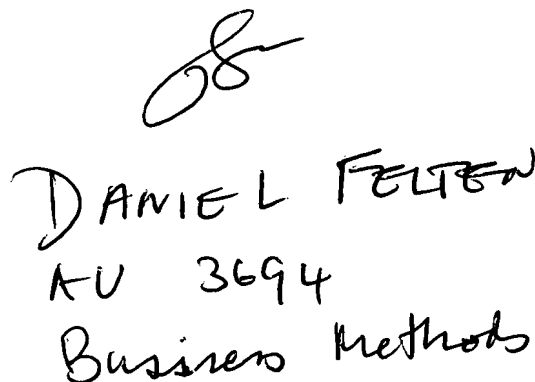 DANIEL FELTEN
AU 3694
Business Methods